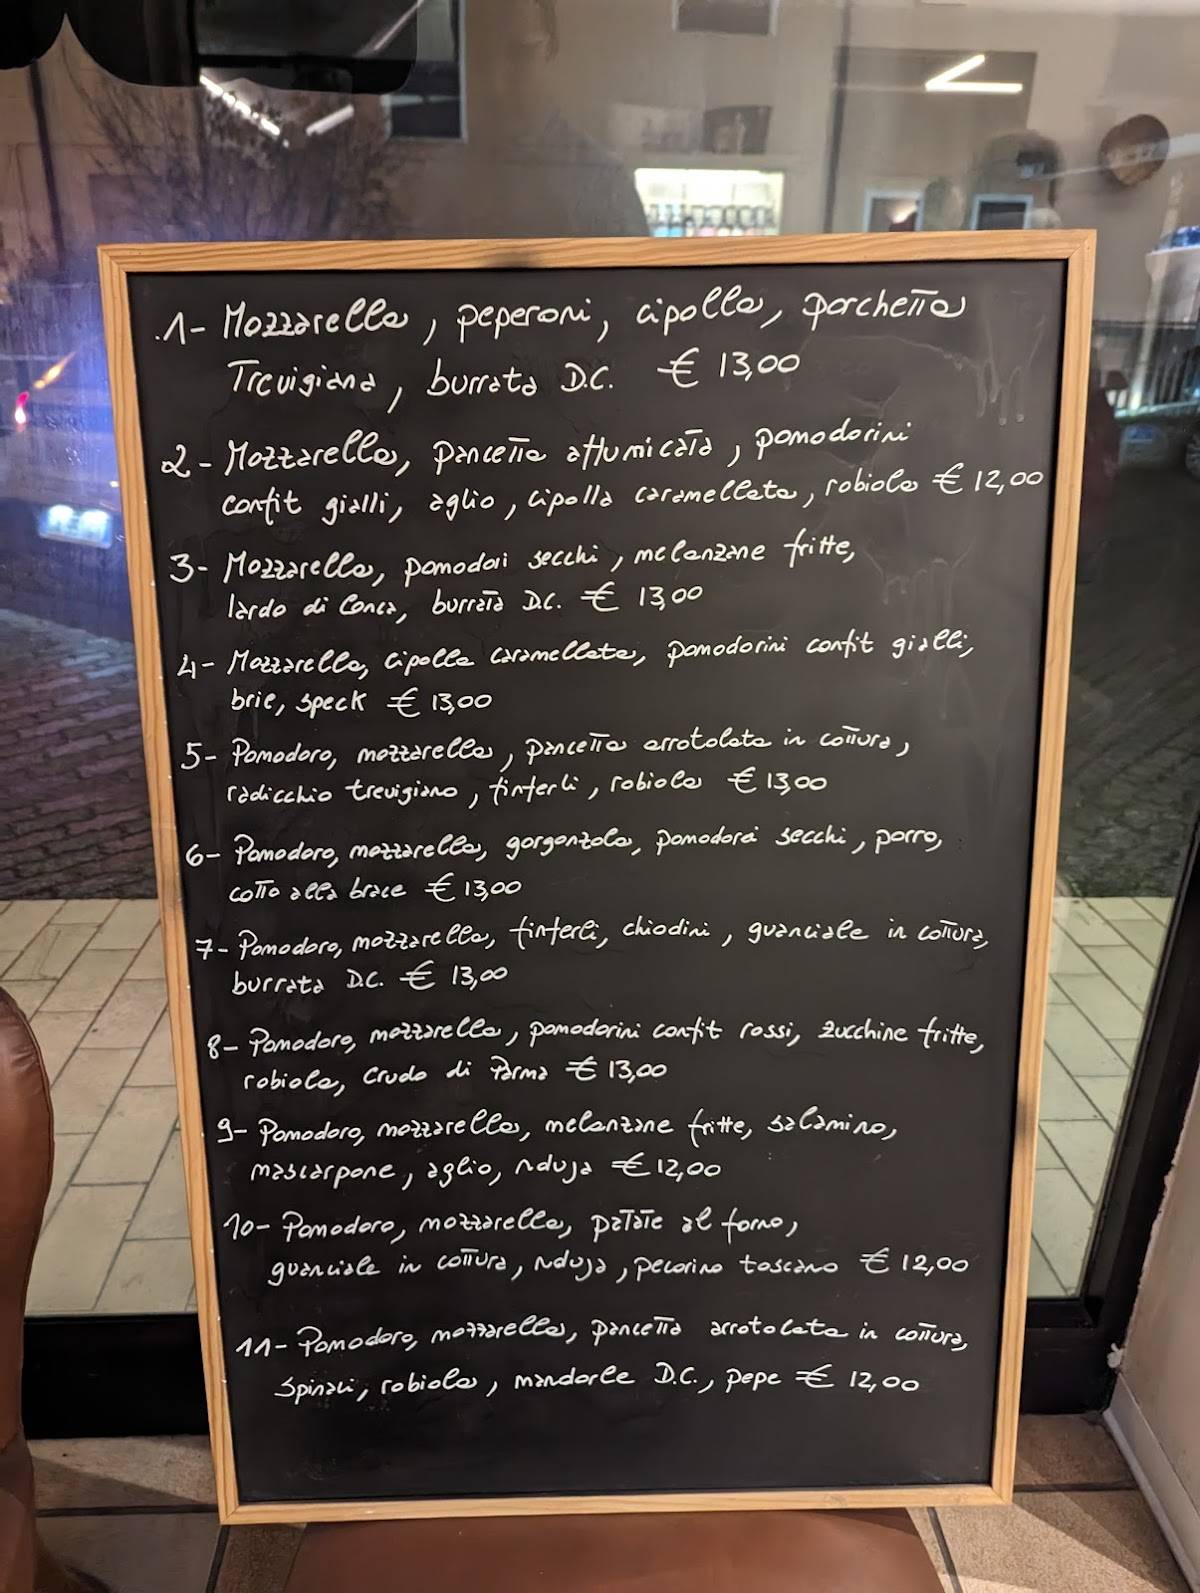 1- Mozzarella, peperoni, cipolla, porchetta
Trevigiana, burrata D.C. € 13,00
2- Mozzarella, pancetta affumicata, pomodorini
confit gialli, aglio, cipolla caramellata, robiola € 12,00
3- Mozzarella, pomodori secchi, melanzane fritte,
lardo di Conca, burrata D.C. € 13,00
4- Mozzarella, cipolla caramellata, pomodorini confit gialli,
brie, speck € 13,00
5- Pomodoro, mozzarella, pancetta arrotolata in cottura,
radicchio trevigiano, finferli, robiola € 13,00
6- Pomodoro, mozzarella, gorgonzola, pomodori secchi, porro,
cotto alla brace € 13,00
7- Pomodoro, mozzarella, finferli, chiodini, guanciale in cottura,
burrata D.C. € 13,00
8- Pomodoro, mozzarella, pomodorini confit rossi, zucchine fritte,
robiola, crudo di Parma € 13,00
9- Pomodoro, mozzarella, melanzane fritte, salamino,
mascarpone, aglio, nduja € 12,00
10- Pomodoro, mozzarella, patate al forno,
guanciale in cottura, nduja, pecorino toscano € 12,00
11- Pomodoro, mozzarella, pancetta arrotolata in cottura,
spinaci, robiola, mandorle D.C., pepe € 12,00